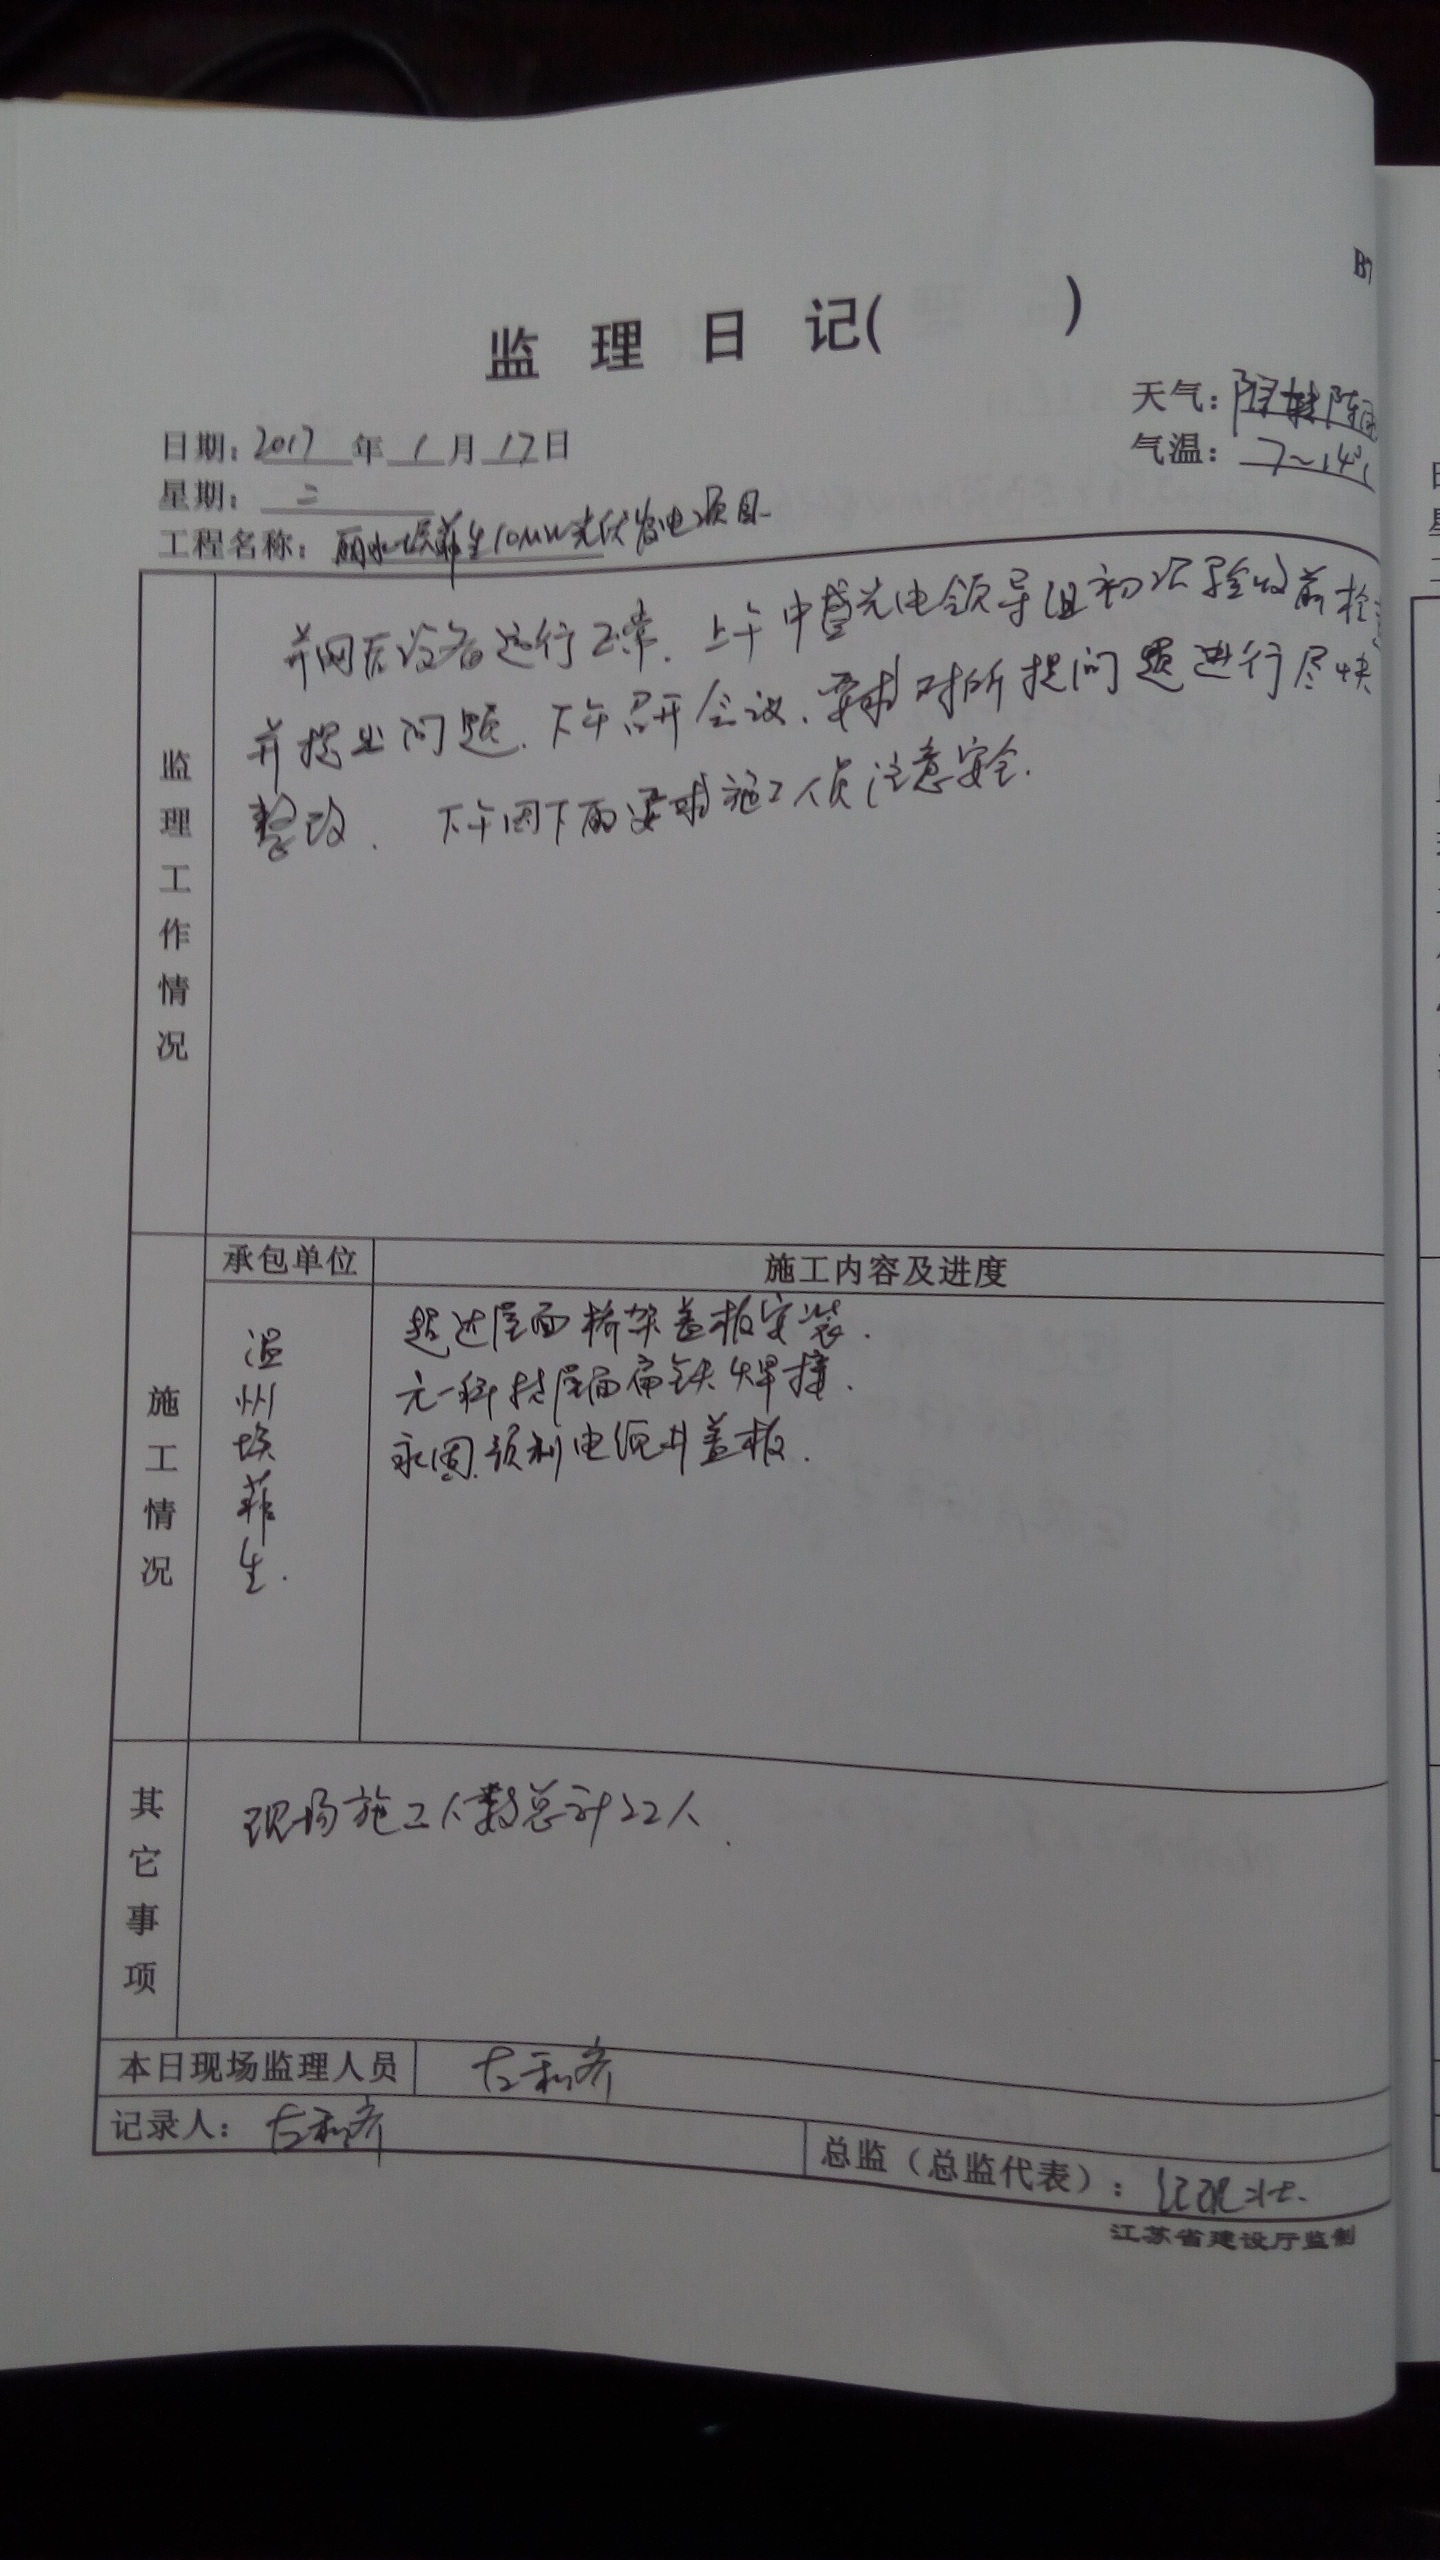 B7
监理日记( )
天气：阴转阵雨
日期：2017年1月17日
气温：7~14℃
星期：二
工程名称：丽水埃菲生10MW光伏发电项目
监理工作情况
并网后设备运行正常．上午中盛光电领导组初次验收前检
并提出问题．下午召开会议、要求对所提问题进行尽快
整改．下午因下雨要求施工人员注意安全．
承包单位
施工内容及进度
施工情况
温州埃菲生．
超达屋面桥架盖板安装．
元一科技屋面扁铁焊接．
永固．预制电缆井盖板．
其它事项
现场施工人数总计22人．
本日现场监理人员
左利齐
记录人：左利齐
总监（总监代表）：
江苏省建设厅监制